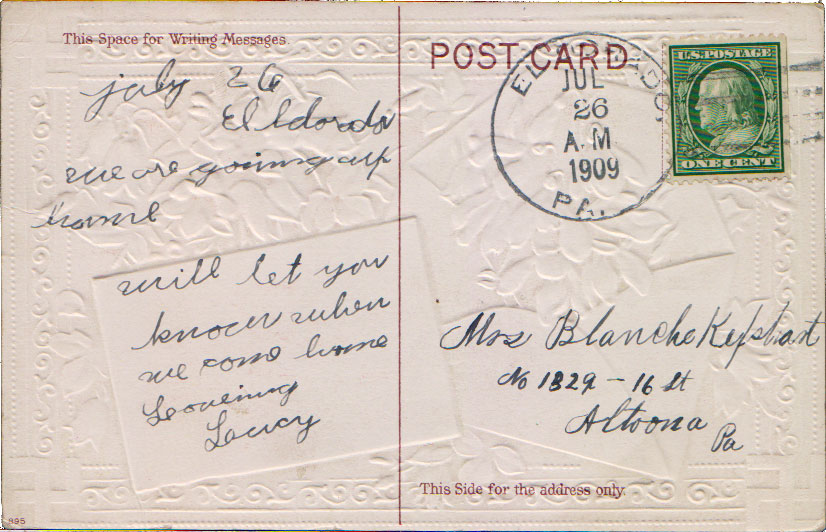 This Space for Writing Messages.
july 26
Elldordo
we are going up
home
will let you
know when
we come home
Loveing
Lucy
POST CARD
JUL
26
A.M
1909
PA.
U.S. POSTAGE
ONE CENT
Mrs Blanche Kephart
No 1829 - 16 st
Altoona
Pa
This Side for the address only.
895